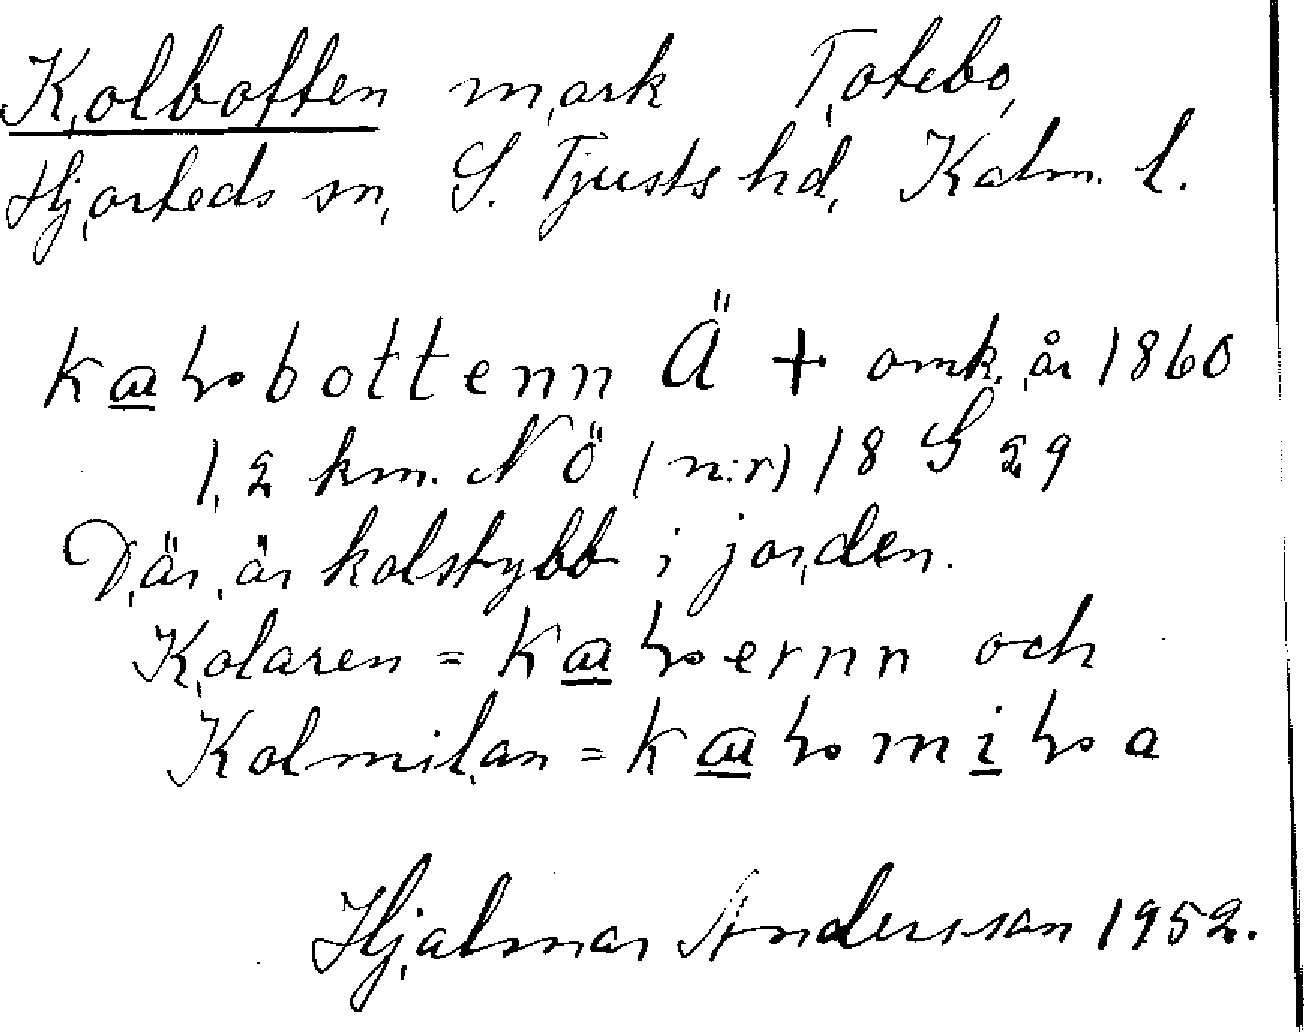 Kolbotten mark Totebo,
Hjorteds sn, S. Tjusts hd, Kalm. l.
kaꞎbottenn Ä + omk. år 1860
1,2 km. NÖ (n:r) 18 G 29
Där är kolstybb i jorden.
Kolaren = kaꞎernn och
Kolmilan = kaꞎmiꞎa
Hjalmar Andersson 1952.